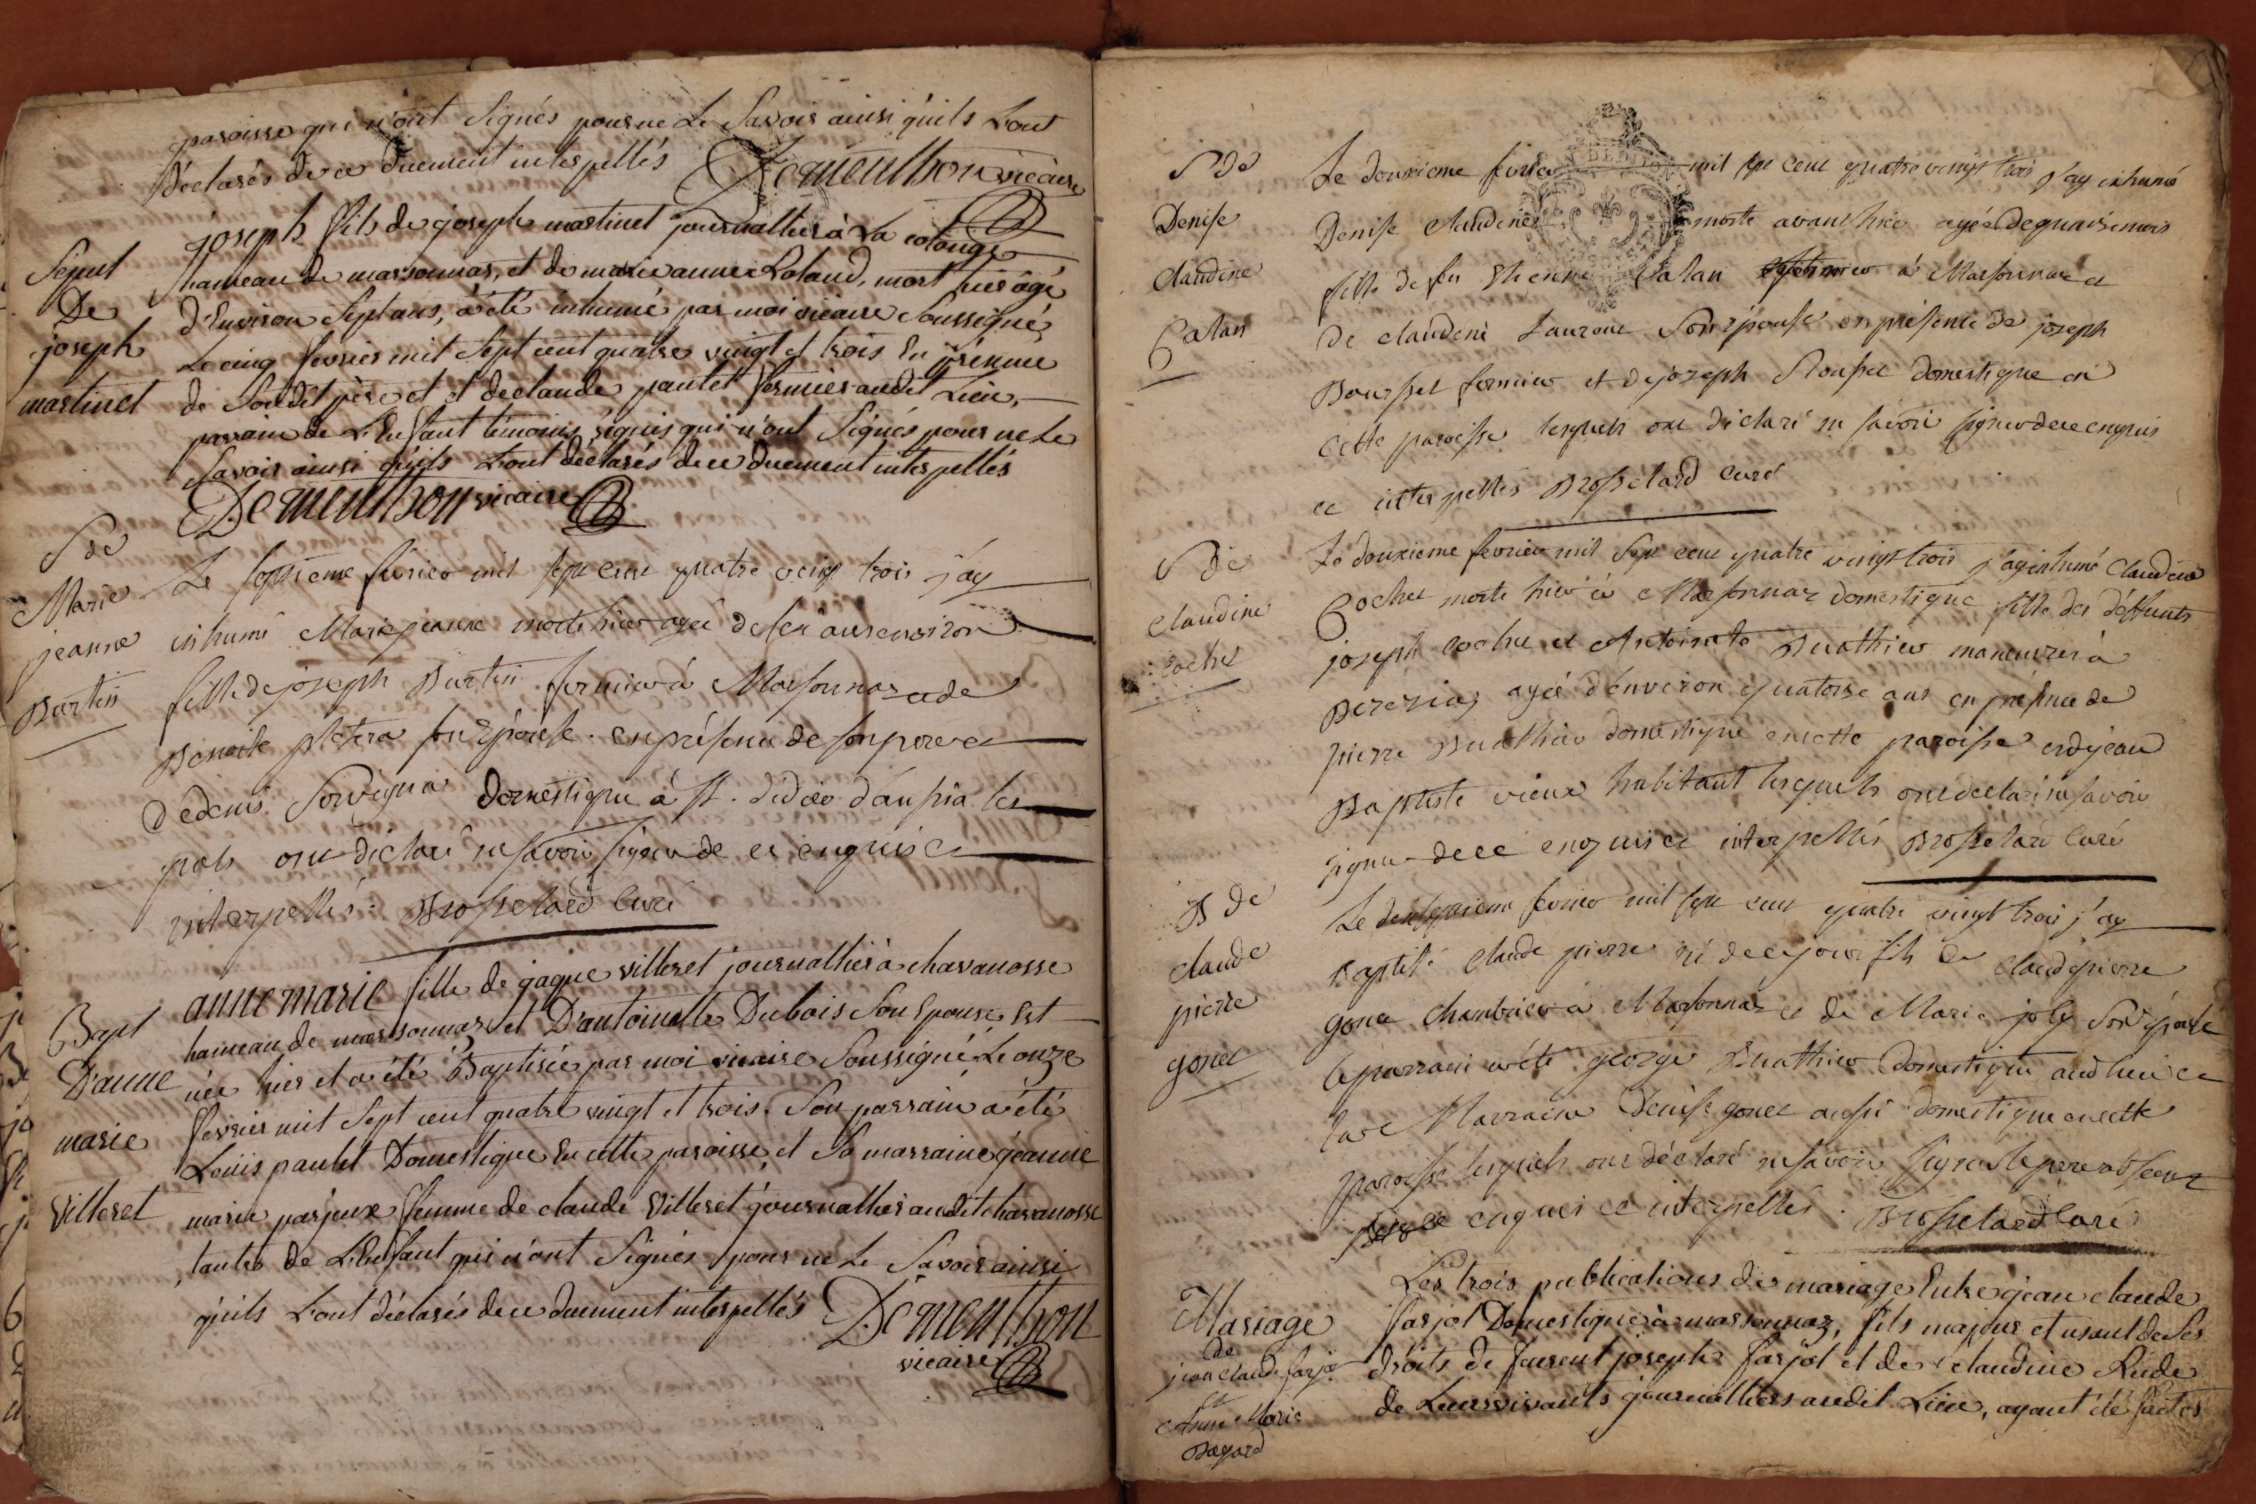 paroisse qui n'ont signés pour ne le savoir ainsi qu'ils l'ont
déclarés de ce duement interpellés Dementhon vicaire
Sepult
De
joseph
martinet
joseph fils de joseph martinet journallier à la colonge
hameau de marsonnas, et de marie anne Laland, mort hier âgé
d'Environ sept ans, à été inhumé par moi vicaire soussigné
le cinq fevrier mil sept cent quatre vingt et trois En présence
de son dit père et de claude paulet fermier audit Lieu,
parrain de L'Enfant témoins réquis qui n'ont signés pour ne le
savoir ainsi qu'ils l'ont déclarés de ce duement interpellés
Dementhon vicaire
S de
Marie
jeanne
Burtin
Le septieme fevrier mil sept cent quatre vingt trois j'ay
inhumé Marie jeanne morte hier agée de six ans environ
fille de joseph Burtin fermier à Marsonnaz et de
Benoite son épouse en présence de son pere et
de denis domestique à st. didier d'aussia les
quels ont déclaré ne savoir signer de ce enquis et
interpellés. Brossetard curé
Bapt
D'anne
marie
villeret
anne marie fille de jaque villeret journallier à chavanosse
hameau de marsonnaz, et D'antoinette Dubois son Epouse Est
née hier et a été Baptisée par moi vicaire soussigné Le onze
fevrier mil sept cent quatre vingt et trois. Son parrain à été
Loüis paulet Domestique En cette paroisse, et sa marraine jeanne
marie parjeux femme de claude villeret journallier audit chavanosse
tante de L'Enfant qui n'ont signés pour ne le savoir ainsi
qu'ils l'ont déclarés de ce duement interpellés Dementhon
vicaire
S de
Denise
Claudine
Catan
Le douxieme fevrier mil sept cent quatre vingt trois j'ay inhumé
Denise Claudine morte avant hier agée de quinze mois
fille de feu Etienne Catan à Marsonnaz et
de claudine Laurent son épouse en présence de joseph
Bousset fermier et de joseph Rousset domestique en
cette paroisse lesquels ont déclaré ne savoir signer de ce enquis
et interpellés Brossetard curé
S de
Claudine
Cochet
Le douxieme fevrier mil sept cent quatre vingt trois j'ay inhumé Claudine
Cochet morte hier à Marsonnaz domestique fille des deffunts
joseph cochet et Antoinette Buathier manouvrier à
Bereziaz agée d'environ quatorze ans en présence de
pierre Buathier domestique en cette paroisse et de jean
Baptiste vieux habitant lesquels ont déclaré ne savoir
signer de ce enquis et interpellés Brossetard curé
B de
claude
pierre
gonet
Le fevrier mil sept cent quatre vingt trois j'ay
Baptisé claude pierre né de ce jour fils de claude pierre
gonet chambrier à Marsonnaz et de Marie joly son épouse
le parrain a été george Buathier domestique aud lieu et
la Marraine Denise gonet aussi domestique en cette
paroisse lesquels ont déclaré ne savoir signer le pere absent
de ce enquis et interpellés. Brossetard curé
Mariage
de
jean claude farjot
et
Anne Marie
Bayard
Les trois publications du mariage Entre jean claude
farjot Domestique à marsonnaz, fils majeur et usant de ses
droits de Laurent joseph farjot et de claudine Rude
de Leurs vivants journalliers audit Lieu, ayant été faites